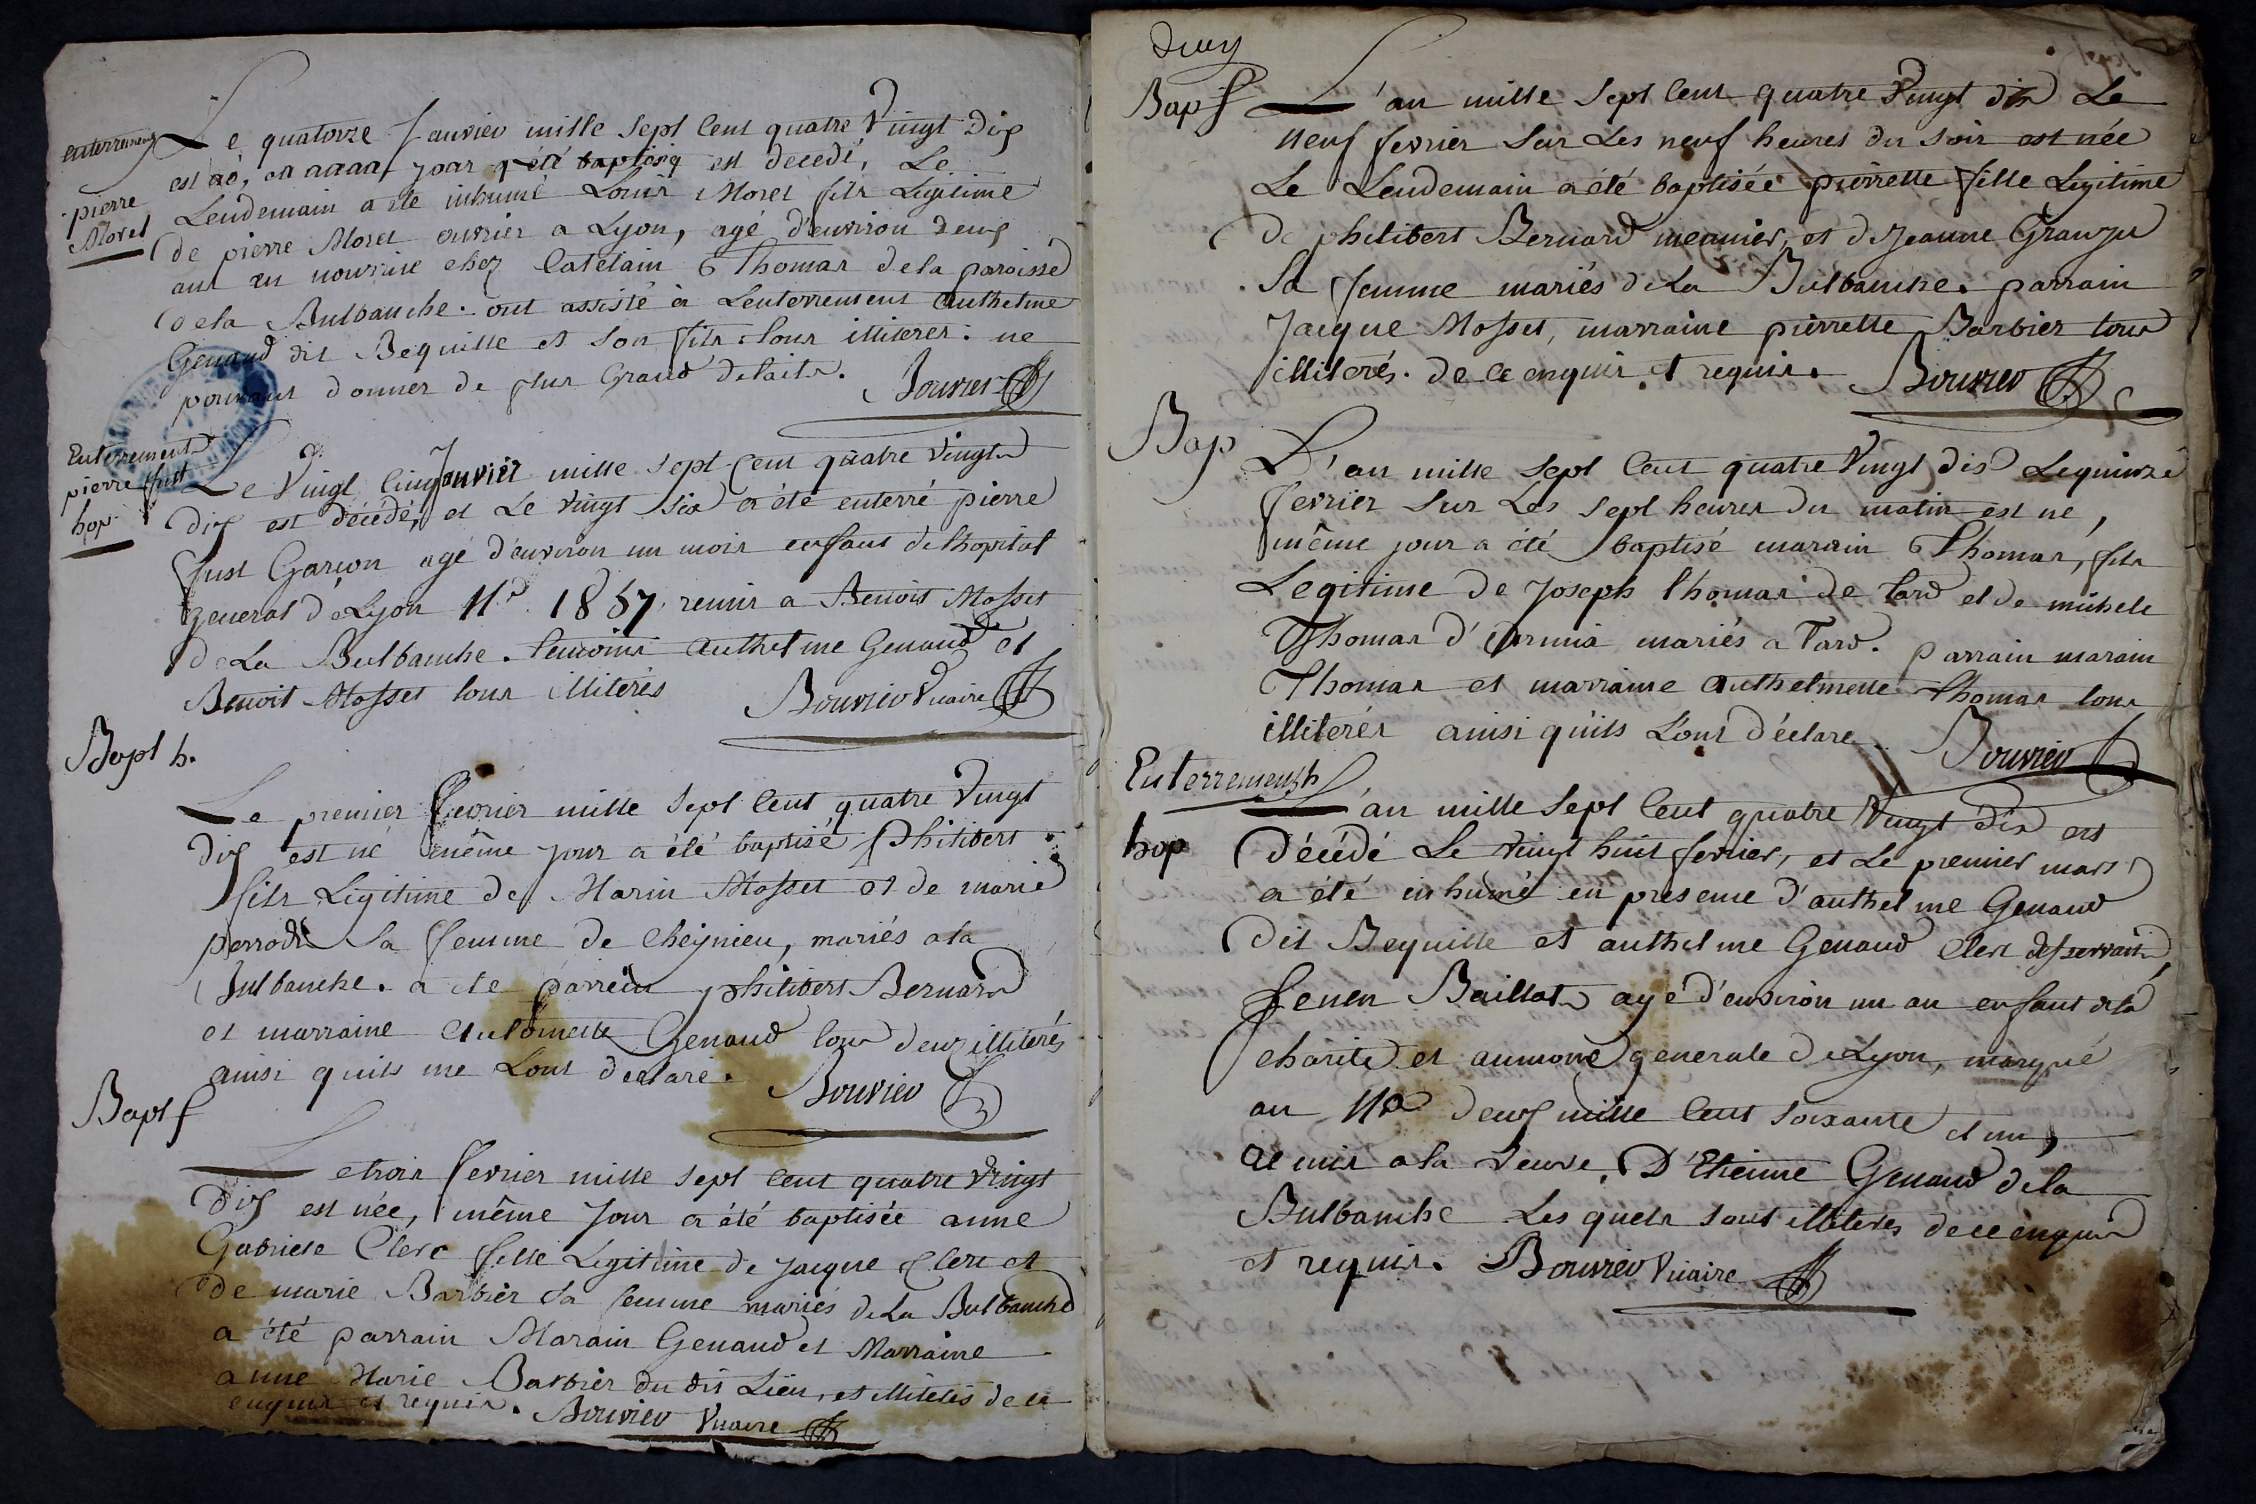 enterrement
pierre
Morel
Le quatorze Janvier mille sept Cent quatre Vingt Dix
est decedé, Le
Lendemain a ete inhumé Louis Morel fils Legitime
de pierre Morel ouvrier a Lyon, agé d'environ deux
ans en nourrice chez Catelain Thomas dela paroisse
dela Bulbanche. ont assisté à Lenterrement Anthelme
Genaud dit Bequille et son fils tous illiterés. ne
pouvant donner de plus Grand details. Bouvier
Enterrement
pierre just
hop.
Le Vingt Cinq Janvier mille sept Cent quatre Vingts
dix est décédé, et Le vingt six a été enterré pierre
Just Garçon agé d'environ un mois enfant de lhopital
general de Lyon No. 1857 remis a Benoit Mosset
de La Bulbanche. temoins Anthelme Genaud et
Benoit Mosset tous illiterés Bouvier Vicaire
Bapt h.
Le premier fevrier mille sept Cent quatre Vingt
dix est né même jour a été baptisé Philibert
fils Legitime de Marin Mosset et de marie
perrode sa femme de cheignieu, mariés a la
Bulbanche. a ete parrein philibert Bernard
et marraine Genaud tous deux illiterés
ainsi quils me L'ont declaré. Bouvier
Bapt f
Le trois fevrier mille sept Cent quatre Vingt
Dix est née, même Jour a été baptisée anne
Gabriele Clerc fille Legitime de Jacque Clerc et
de marie Barbier sa femme mariés de La Bulbanche
a été parrain Marain Genaud et Marraine
anne Marie Barbier du dit Lieu, et illiterés de ce
enquis et requis. Bouvier Vicaire
deux
Bap f
L'an mille sept Cent quatre Vingt dix Le
neuf fevrier sur Les neuf heures du soir est née
Le Lendemain a été baptisée pierrette fille Legitime
De philibert Bernard meunier, et de Jeanne
sa femme mariés de La Bulbanche. parrain
Jacque Mosset, marraine pierrette Barbier tous
illiterés. de ce enquis et requis. Bouvier
Bap
L'an mille sept Cent quatre Vingt dix Le quinze
fevrier sur Les sept heures du matin est né,
même jour a été baptisé marain Thomas, fils
Legitime de Joseph thomas de tard et de michele
Thomas d' mariés a Tard. parrain marain
Thomas et marraine Anthelmette Thomas tous
illiterés ainsi qu'ils L'ont déclaré. Bouvier
Enterrement h
hop
L'an mille sept Cent quatre Vingt dix est
décédé Le vingt huit fevrier, et Le premier mars
a été inhumé en presence d'anthelme Genaud
Dit Bequille et anthelme Genaud clerc desservant
Baillat agé d'environ un an enfant de la
charité et aumone generale de Lyon, marqué
au No deux mille Cent soixante et un,
remis a la Veuve D'Etienne Genaud de la
Bulbanche Les quels sont illiterés de ce enquis
et requis. Bouvier Vicaire